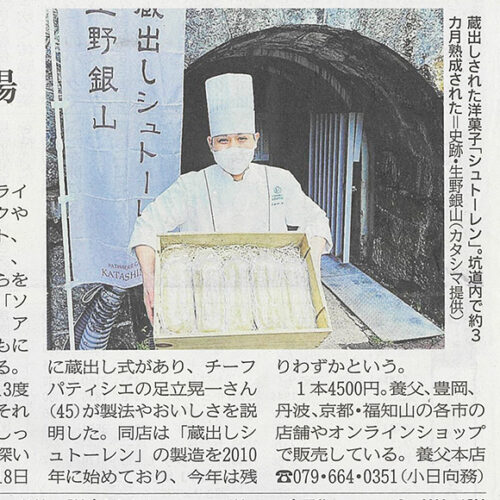 蔵出しシュトーレ
生野銀山
KATASHIM
蔵出しされた洋菓子「シュトーレン」。坑道内で約3
カ月熟成された＝史跡・生野銀山（カタシマ提供）
場
ライ
クや
ト、
、
らを
「ソ
ア
もに
る。
3度
それ
しっ
深い
8日
に蔵出し式があり、チーフ
パティシエの足立晃一さん
(45)が製法やおいしさを説
明した。同店は「蔵出しシ
ュトーレン」の製造を2010
年に始めており、今年は残
りわずかという。
１本4500円。養父、豊岡、
丹波、京都・福知山の各市の
店舗やオンラインショップ
で販売している。養父本店
☎079・664・0351（小日向務）